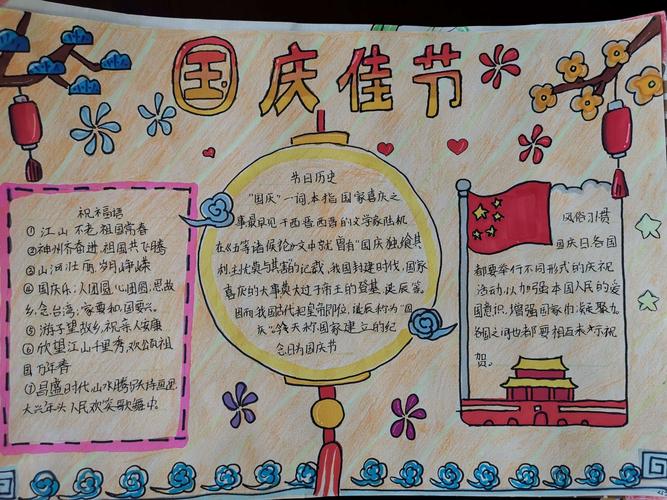 国庆佳节
祝福语
①江山不老,祖国常春
②神州齐奋进,祖国共飞腾
③山河壮丽,岁月峥嵘
④国庆乐;人团圆,心团圆;思故
乡,念台湾;家要和,国要兴。
⑤游子望故乡,祝亲人安康
⑥欣望江山千里秀,欢颂祖
国万年春
⑦昌盛时代,山水腾欢诗画里
大兴年头,人民欢笑歌舞中。
节日历史
"国庆"一词,本指国家喜庆之
事最早见于西晋。西晋的文学家陆机
在《五等诸侯论》文中就曾有"国庆独飨其
利,主忧莫与其害"的记载,我国封建时代,国家
喜庆的大事,莫大过于帝王的登基、诞辰等。
因而我国古代把皇帝即位、诞辰称为"国
庆"。今天称国家建立的纪
念日为国庆节
风俗习惯
国庆日各国
都要举行不同形式的庆祝
活动,以加强本国人民的爱
国意识,增强国家的凝聚力。
各国之间也都要相互表示祝
贺。